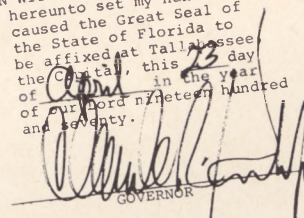 hereunto set my
caused the Great Seal of
the State of Florida to
be affixed at Tallahassee,
the Capital, this 23 day
of April in the year
of our Lord nineteen hundred
and seventy.
GOVERNOR